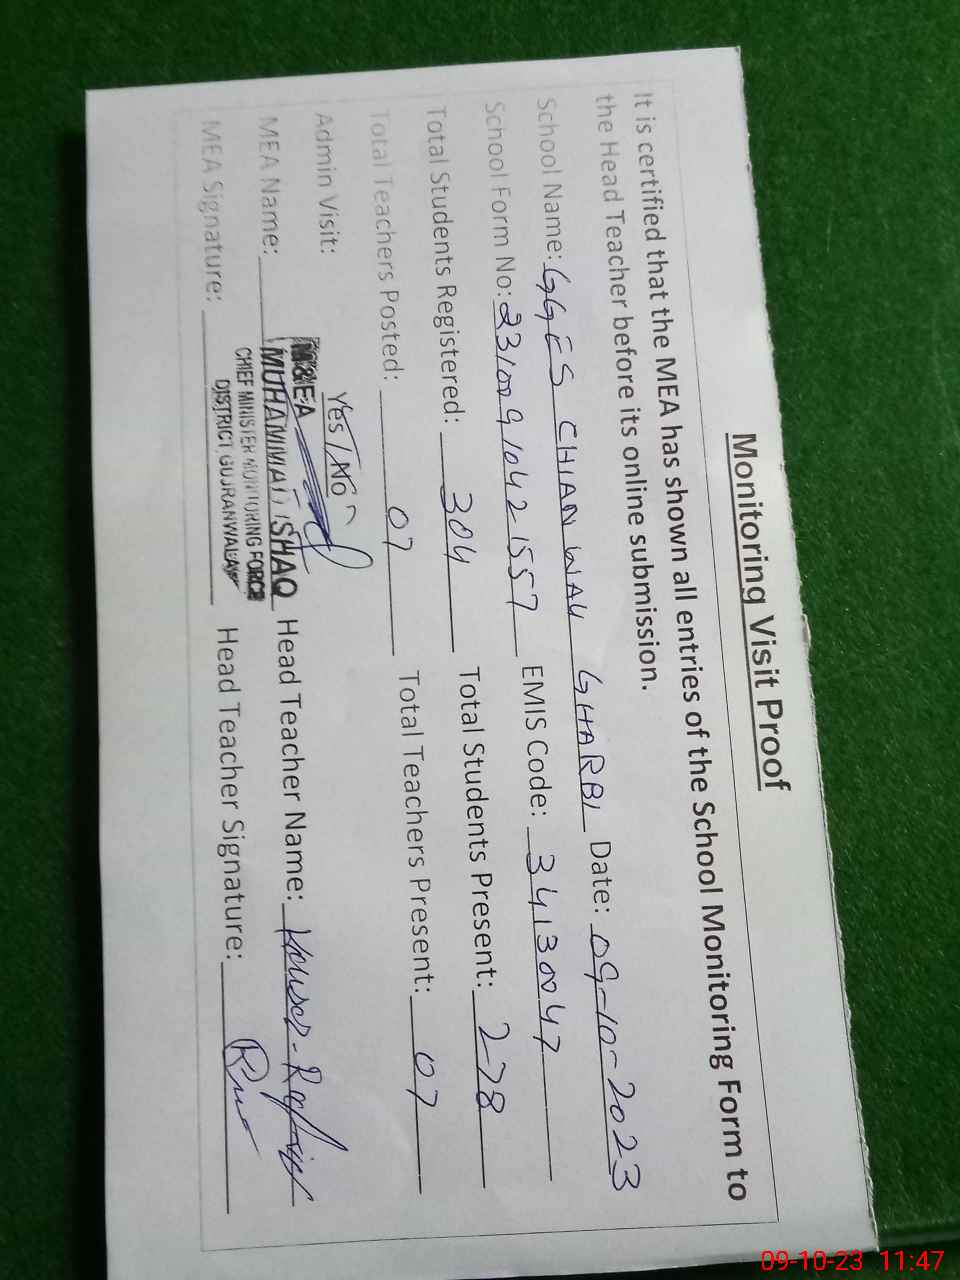 Monitoring Visit Proof
It is certified that the MEA has shown all entries of the School Monitoring Form to
the Head Teacher before its online submission.
School Name: GGES CHIANWALI GHARBI Date: 09-10-2023
School Form No: 23100910421557 EMIS Code: 34130047
Total Students Registered: 304 Total Students Present: 278
Total Teachers Posted: 07 Total Teachers Present: 07
Admin Visit: Yes / No
M&EA
MEA Name: MUHAMMAD ISHAQ Head Teacher Name: Kouser
CHIEF MINISTER MONITORING FORCE
DISTRICT GUJRANWALA
MEA Signature: Head Teacher Signature:
09-10-23 11:47